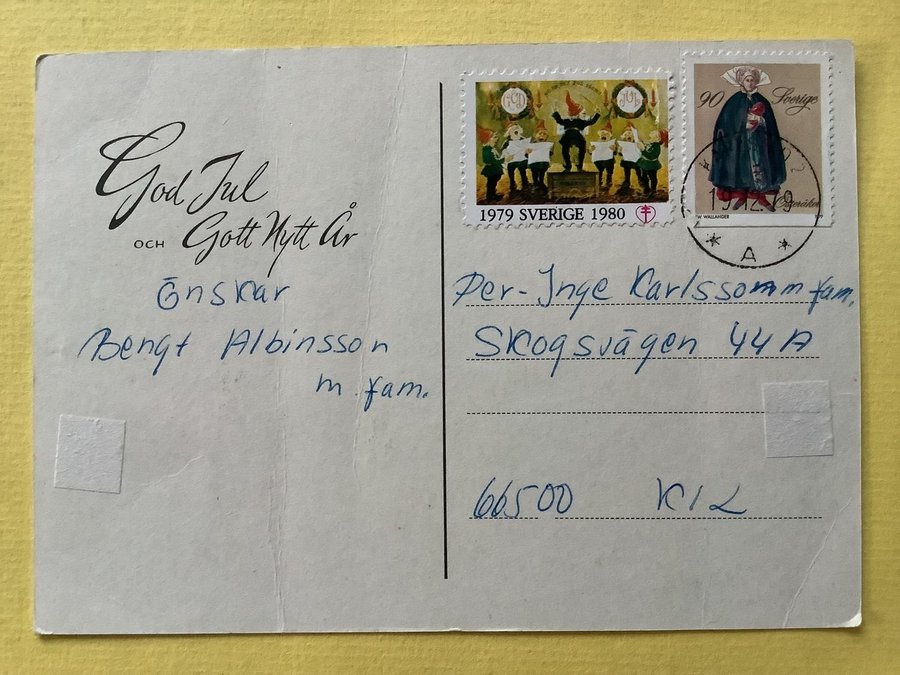 God Jul
OCH Gott Nytt År
Önskar
Bengt Albinsson
m fam.
GOD JUL
1979 SVERIGE 1980
90 Sverige
W. WALLANDER
Österåker
19.12.79
A
Per-Inge Karlsson m fam.
Skogsvägen 44A
66500 KIL